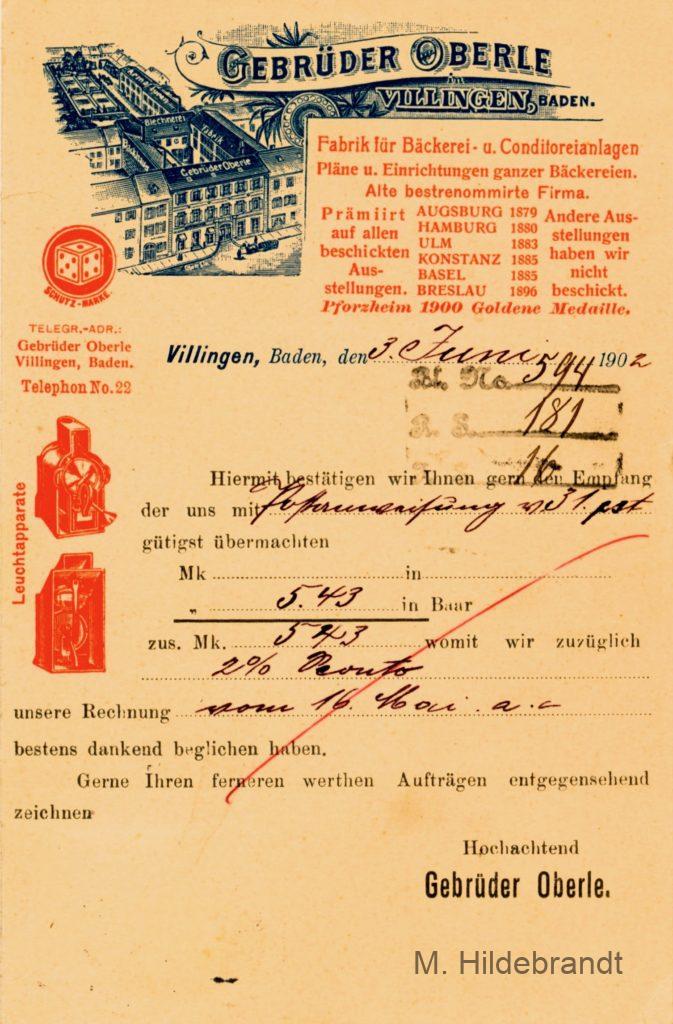 GEBRÜDER OBERLE
in
VILLINGEN, BADEN.
Blechnerei
Fabrik
Gebrüder Oberle
Fabrik für Bäckerei- u. Conditoreianlagen
Pläne u. Einrichtungen ganzer Bäckereien.
Alte bestrenommirte Firma.
Prämiirt auf allen beschickten Aus-stellungen.
AUGSBURG 1879
HAMBURG 1880
ULM 1883
KONSTANZ 1885
BASEL 1885
BRESLAU 1896
Andere Aus-stellungen haben wir nicht beschickt.
Pforzheim 1900 Goldene Medaille.
SCHUTZ-MARKE.
TELEGR.-ADR.:
Gebrüder Oberle
Villingen, Baden.
Telephon No. 22
Leuchtapparate
Villingen, Baden, den 3. Juni 1902
Bl. No. 594
181
16
Hiermit bestätigen wir Ihnen gern den Empfang
der uns mit Postanweisung v. 31. pst
gütigst übermachten
Mk in
„ 5.43 in Baar
zus. Mk. 543 womit wir zuzüglich
2% Sconto
unsere Rechnung vom 16. Mai a. c
bestens dankend beglichen haben.
Gerne Ihren ferneren werthen Aufträgen entgegensehend
zeichnen
Hochachtend
Gebrüder Oberle.
M. Hildebrandt